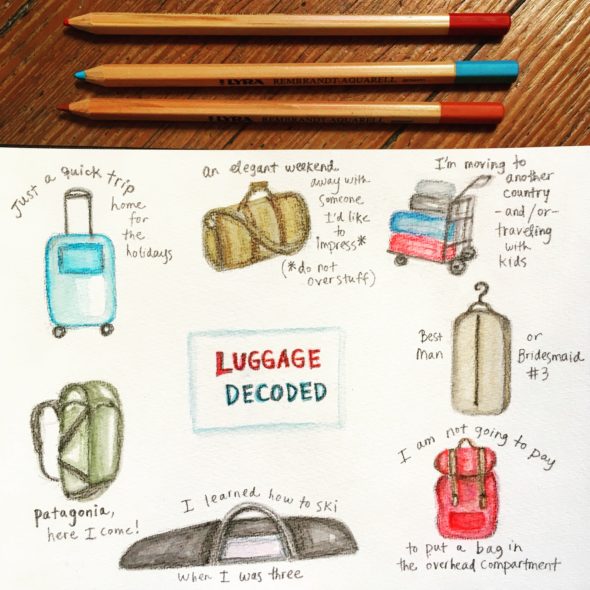 LYRA REMBRANDT-AQUARELL
LYRA REMBRANDT-AQUARELL
Just a quick trip
home
for
the
holidays
an elegant weekend
away with
someone
I'd like
to
impress*
(*do not
overstuff)
I'm moving to
another
country
-and/or-
traveling
with
kids
LUGGAGE
DECODED
Best
Man
or
Bridesmaid
#3
patagonia,
here I come!
I learned how to ski
when I was three
I am not going to pay
to put a bag in
the overhead compartment